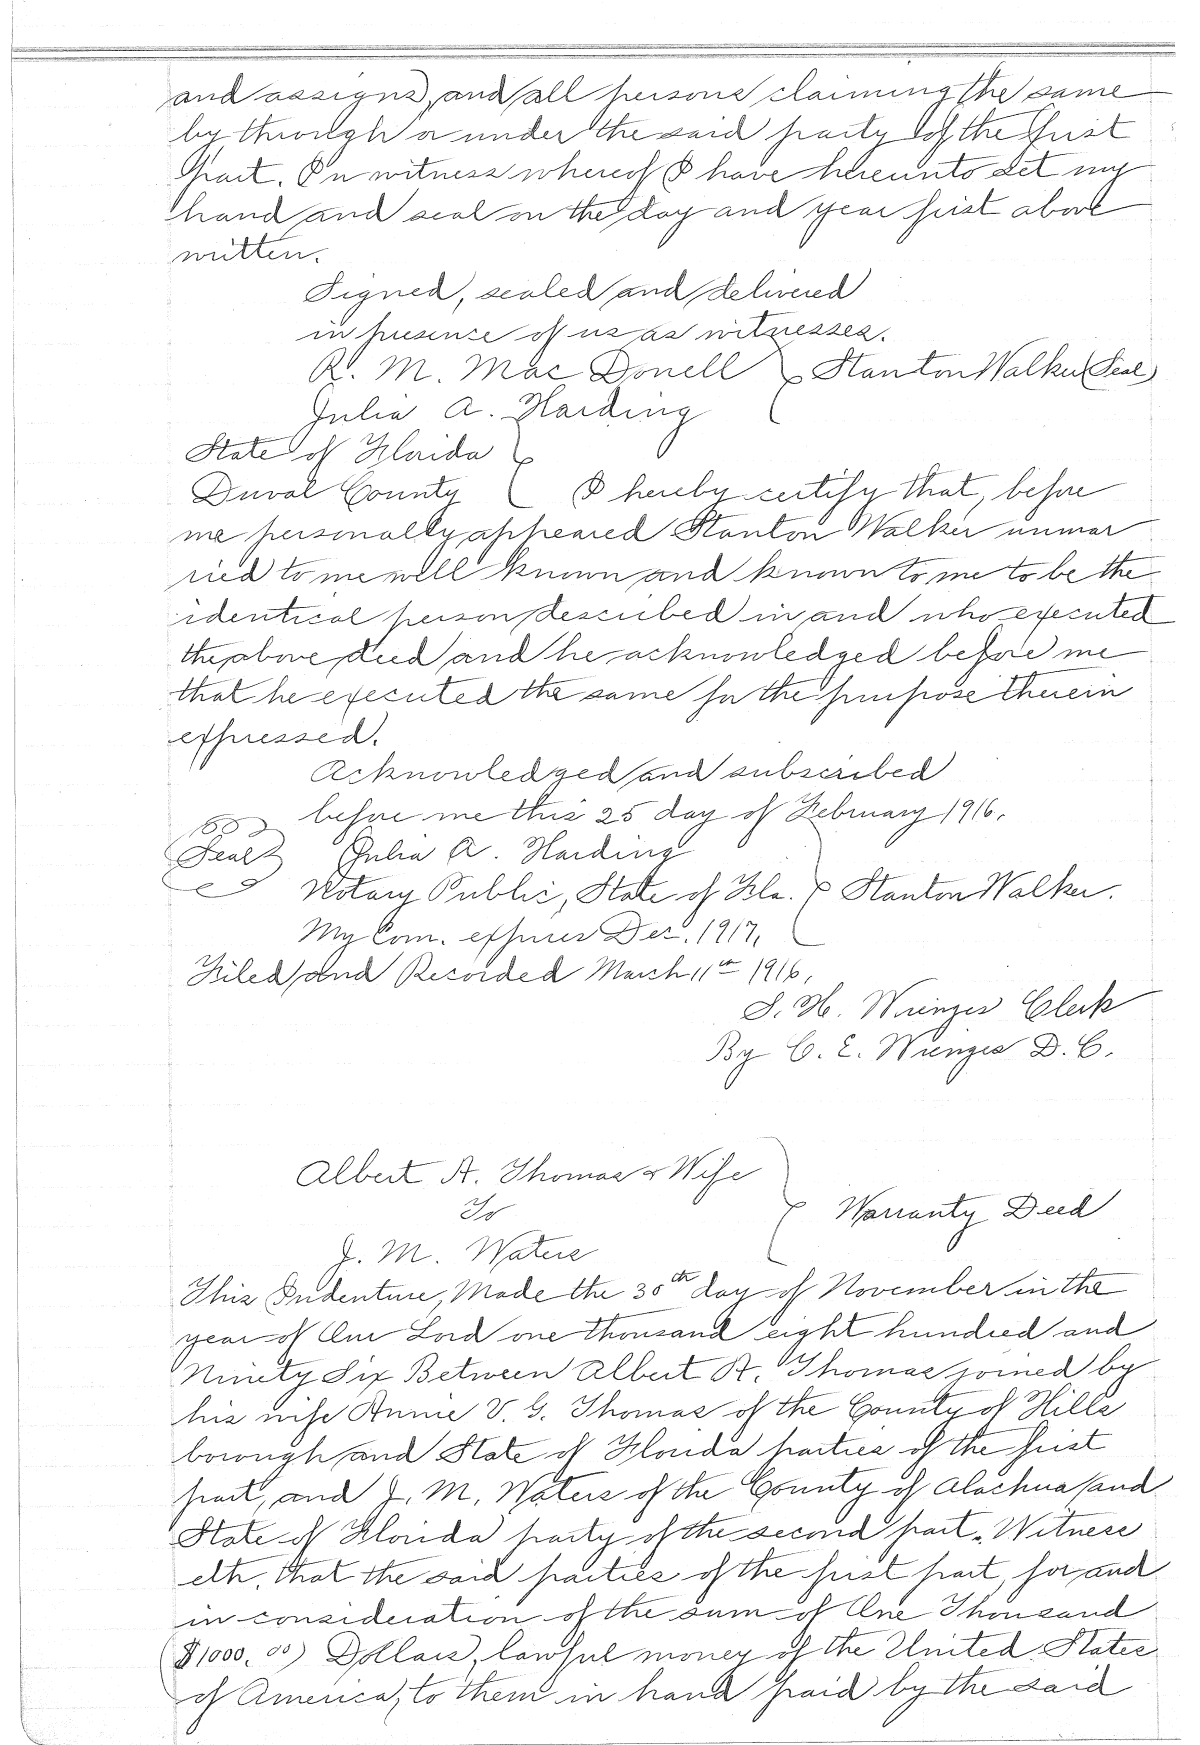 and assigns, and all persons claiming the same
by, through or under the said party of the first
part. In witness whereof I have hereunto set my
hand and seal on the day and year first above
written.
Signed, sealed and delivered
in presence of us as witnesses.
R. M. Mac Donell } Stanton Walker (Seal)
Julia A. Harding
State of Florida
Duval County } I hereby certify that, before
me personally appeared Stanton Walker unmar
ried to me well known and known to me to be the
identical person described in and who executed
the above deed and he acknowledged before me
that he executed the same for the purpose therein
expressed.
Acknowledged and subscribed
before me this 25 day of February 1916.
Seal Julia A. Harding
Notary Public, State of Fla. } Stanton Walker.
My Com. expires Dec. 1917.
Filed and Recorded March 11th 1916.
S. H. Wienges Clerk
By C. E. Wienges D. C.
Albert A. Thomas & Wife
To } Warranty Deed
J. M. Waters
This Indenture, Made the 30th day of November in the
year of Our Lord one thousand eight hundred and
Ninety Six Between Albert A. Thomas joined by
his wife Annie V. G. Thomas of the County of Hills
borough and State of Florida parties of the first
part, and J. M. Waters of the County of Alachua and
State of Florida party of the second part. Witness
eth, that the said parties of the first part, for and
in consideration of the sum of One Thousand
($1000.00) Dollars, lawful money of the United States
of America, to them in hand paid by the said